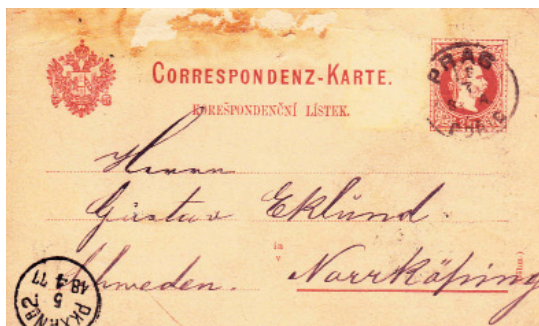 CORRESPONDENZ-KARTE.
KOREŠPONDENČNÍ LÍSTEK.
PRAG
Herrn
Gustav Eklund.
in
v
Schweden. Norrköping
PKXP.N82
5 1
18 4 77